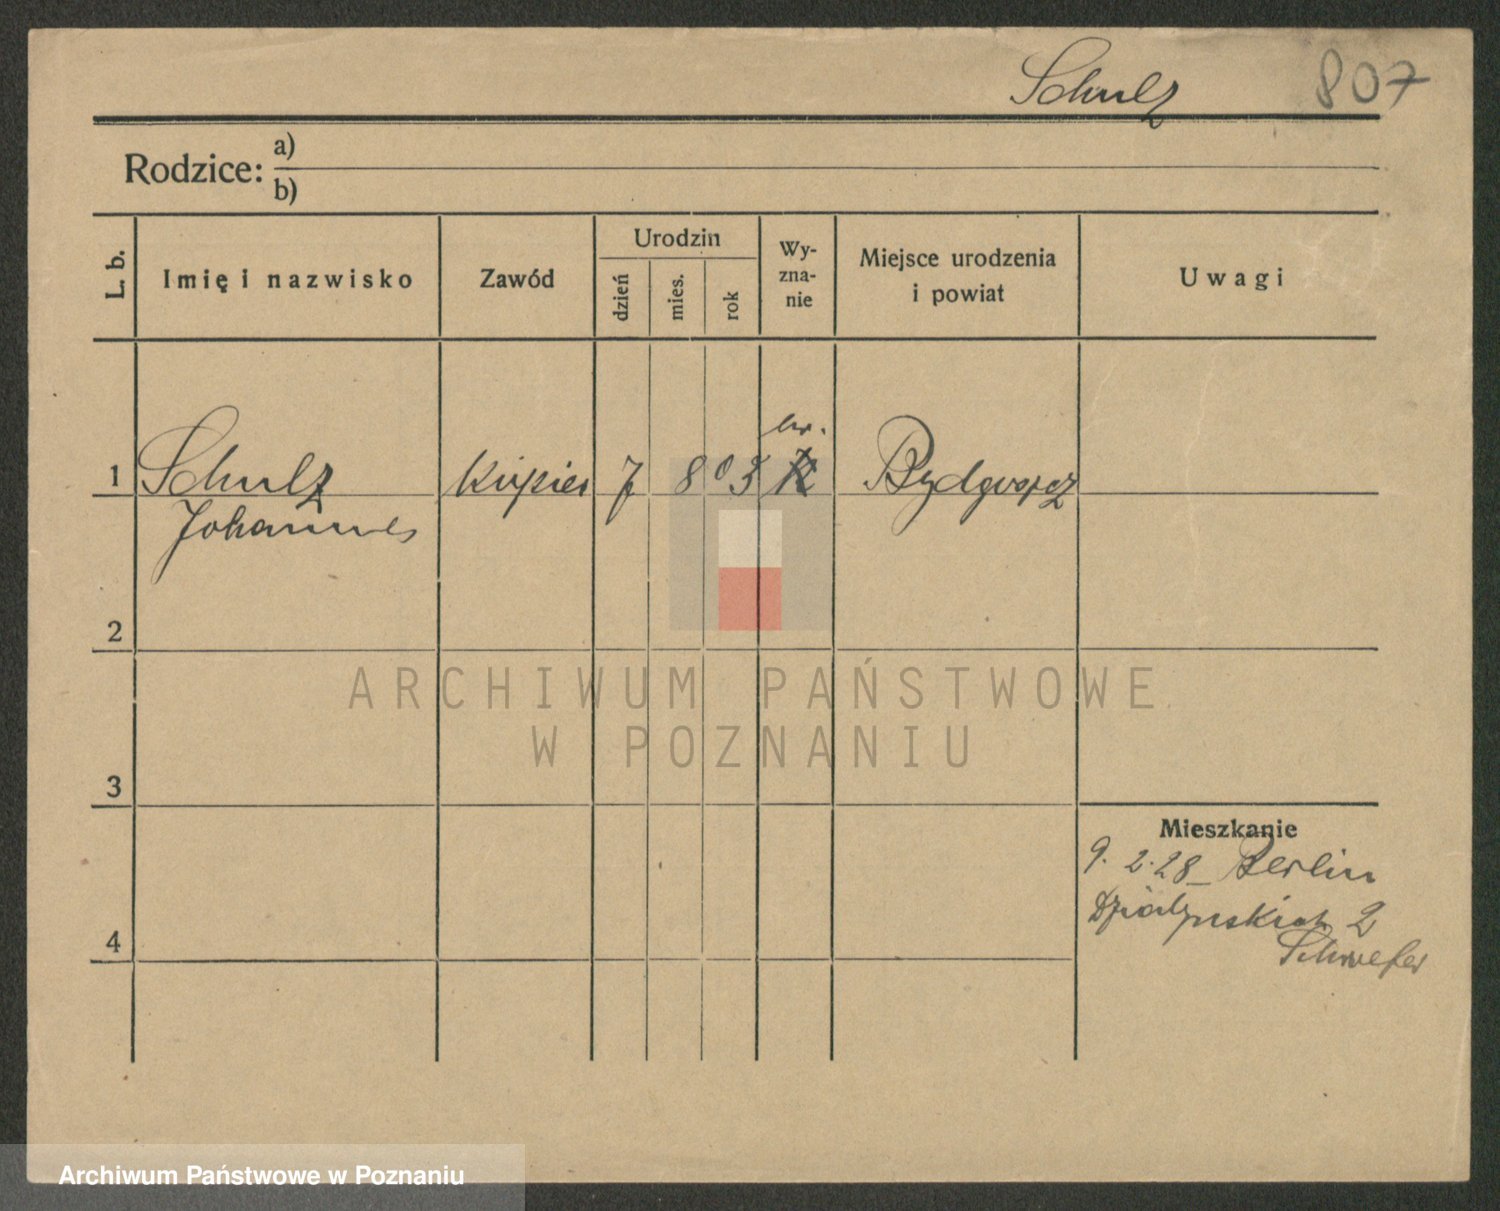 Schulz 807
Rodzice: a)
b)
L. b. Imię i nazwisko Zawód Urodzin dzień mies. rok Wy-
zna-
nie Miejsce urodzenia
i powiat Uwagi
1 Schulz Kupiec 7 8 03 ew. Bydgoszcz
Johannes
2
3
4
Mieszkanie
9. 2. 28 – Berlin
Działyńskich 2
ARCHIWUM PAŃSTWOWE
W POZNANIU
Archiwum Państwowe w Poznaniu